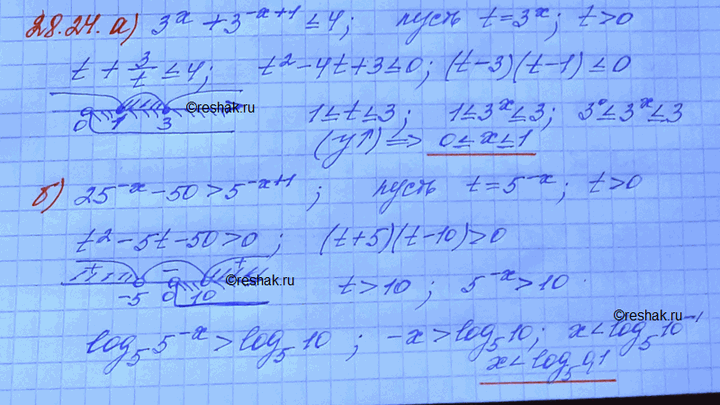 28.24. а) 3ˣ + 3⁻ˣ⁺¹ ≤ 4; пусть t = 3ˣ; t > 0
t + 3/t ≤ 4; t² - 4t + 3 ≤ 0; (t-3)(t-1) ≤ 0
0 1 3 ©reshak.ru 1 ≤ t ≤ 3; 1 ≤ 3ˣ ≤ 3; 3⁰ ≤ 3ˣ ≤ 3
(у↑) => 0 ≤ x ≤ 1
б) 25⁻ˣ - 50 > 5⁻ˣ⁺¹; пусть t = 5⁻ˣ; t > 0
©reshak.ru
t² - 5t - 50 > 0; (t+5)(t-10) > 0
+ - + ©reshak.ru
-5 0 10 t > 10; 5⁻ˣ > 10
©reshak.ru
log₅5⁻ˣ > log₅10; -x > log₅10; x < log₅10⁻¹
x < log₅0,1